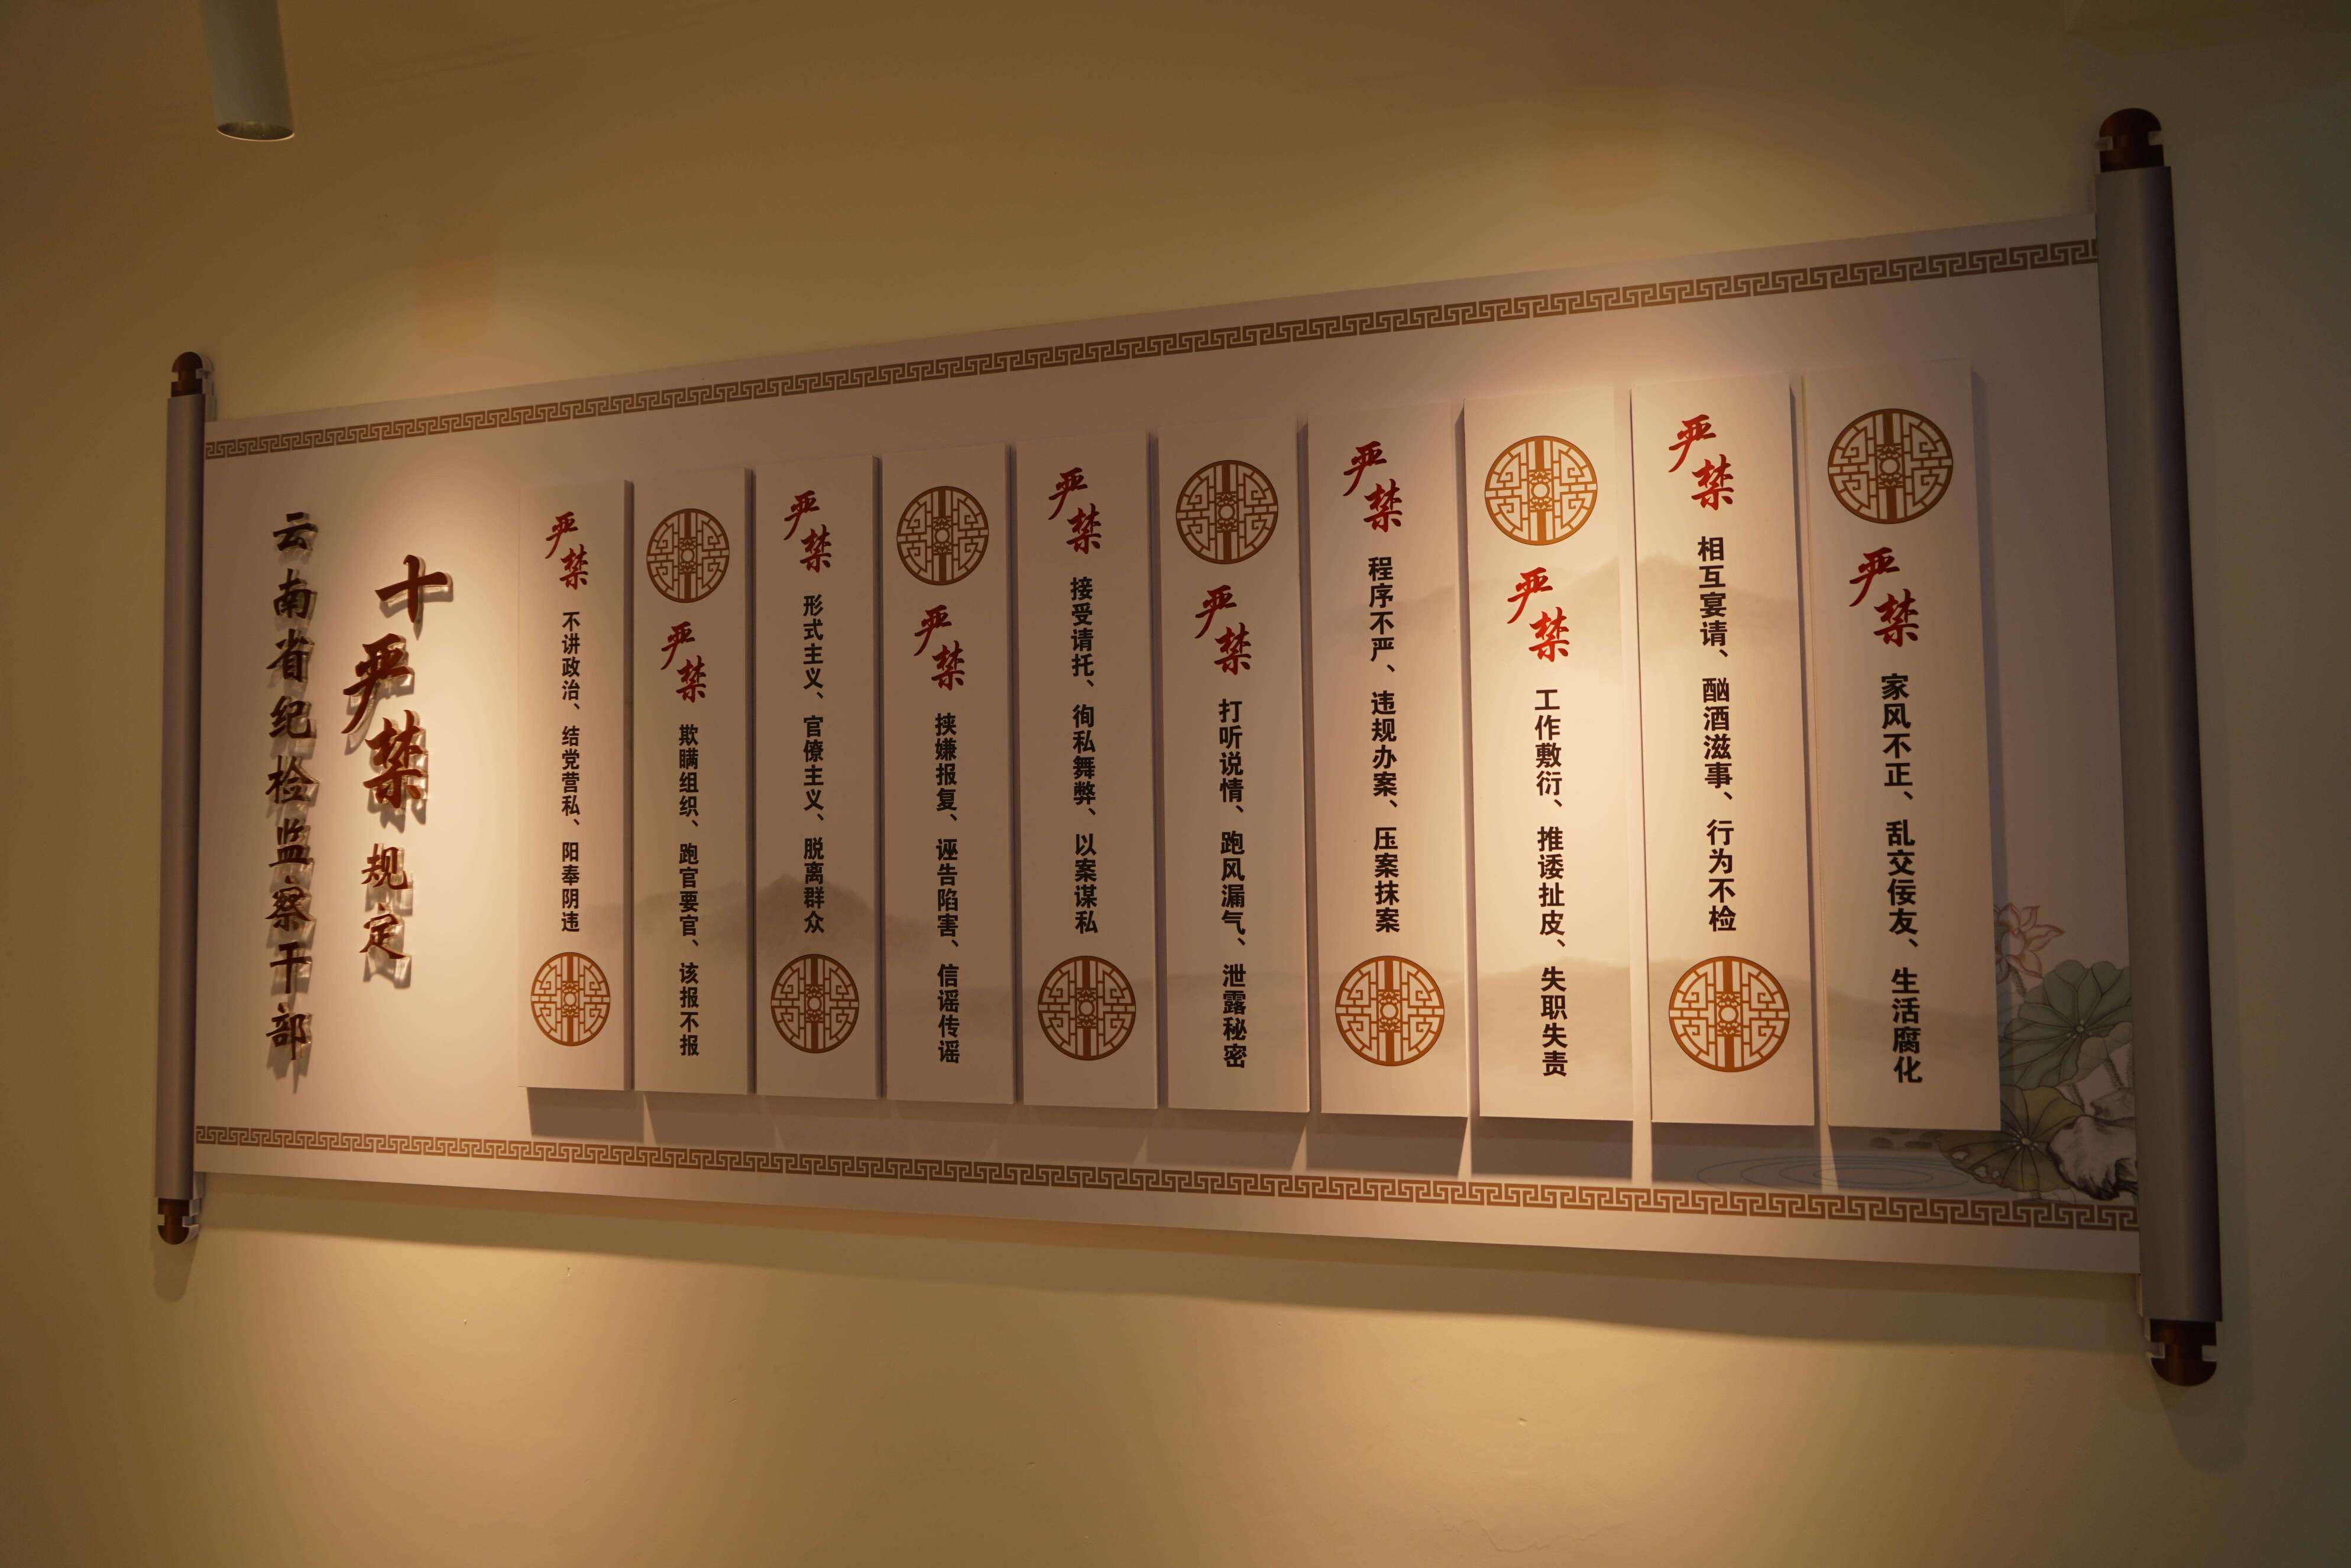 云南省纪检监察干部
十严禁规定
严禁
不讲政治、结党营私、阳奉阴违
严禁
欺瞒组织、跑官要官、该报不报
严禁
形式主义、官僚主义、脱离群众
严禁
挟嫌报复、诬告陷害、信谣传谣
严禁
接受请托、徇私舞弊、以案谋私
严禁
打听说情、跑风漏气、泄露秘密
严禁
程序不严、违规办案、压案抹案
严禁
工作敷衍、推诿扯皮、失职失责
严禁
相互宴请、酗酒滋事、行为不检
严禁
家风不正、乱交佞友、生活腐化